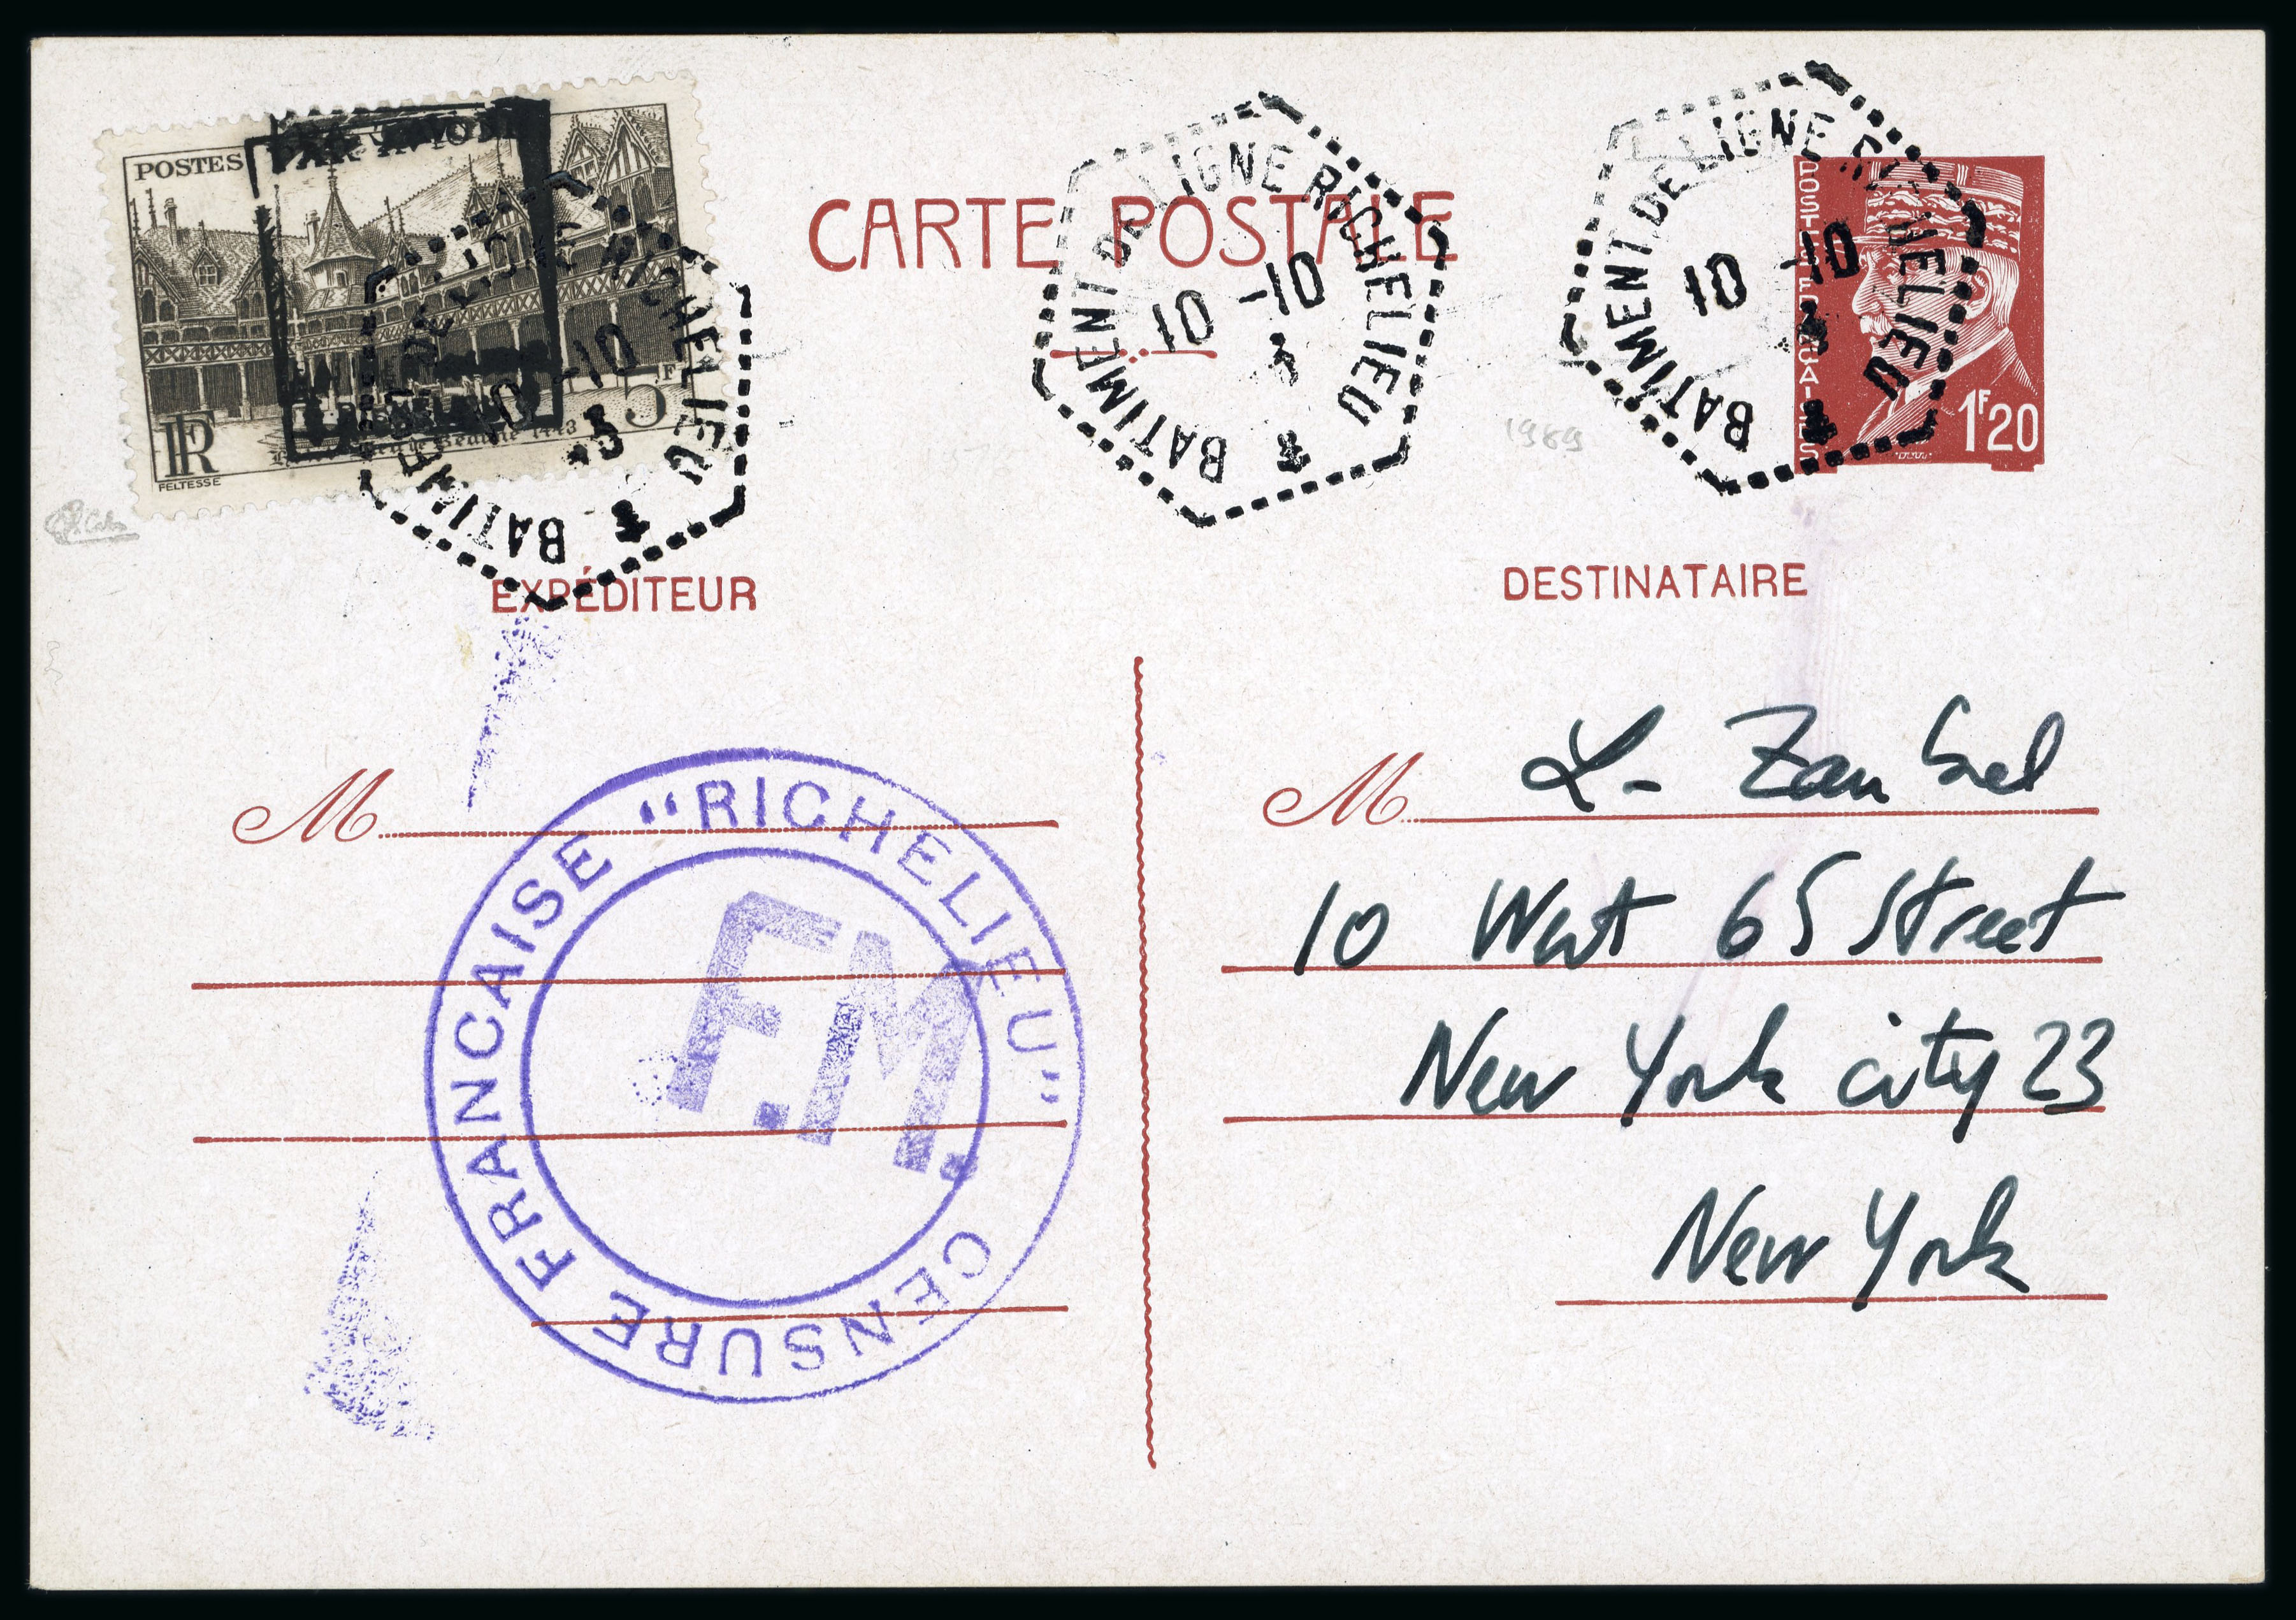 POSTES
RF
5F
FELTESSE
CARTE POSTALE
BATIMENT DE LIGNE RICHELIEU
10 -10
BATIMENT DE LIGNE RICHELIEU
10 -10
BATIMENT DE LIGNE RICHELIEU
10 -10
POSTES FRANÇAISES
1F20
1989
EXPÉDITEUR
DESTINATAIRE
M
CENSURE FRANCAISE "RICHELIEU"
F.M.
M L- Zambel
10 West 65 Street
New York city 23
New York